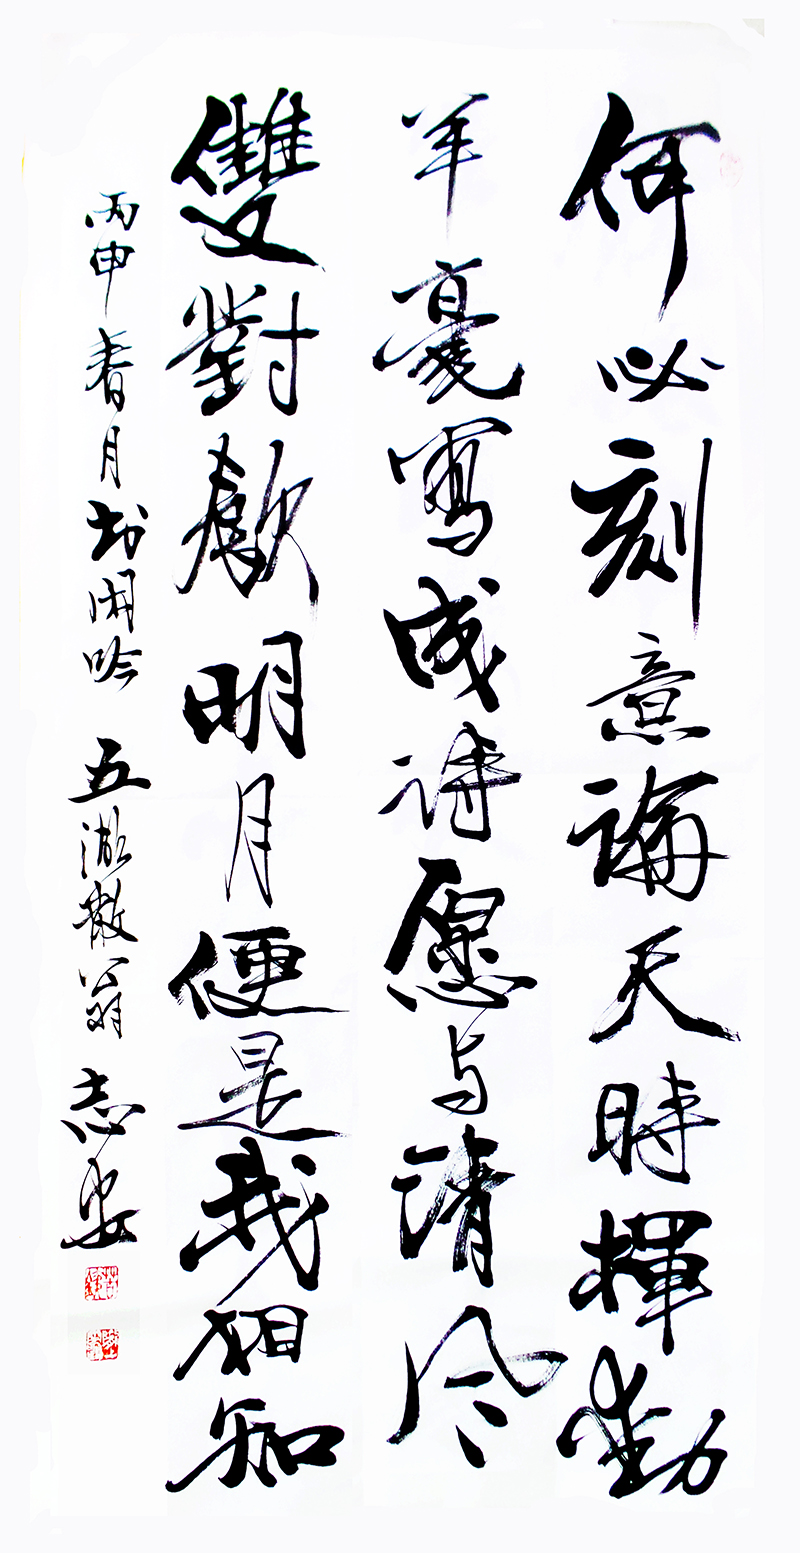 何必刻意論天時揮動
羊毫寫成诗愿与清风
雙對歌明月便是我相知
丙申春月书闲吟 五湖散翁志坚